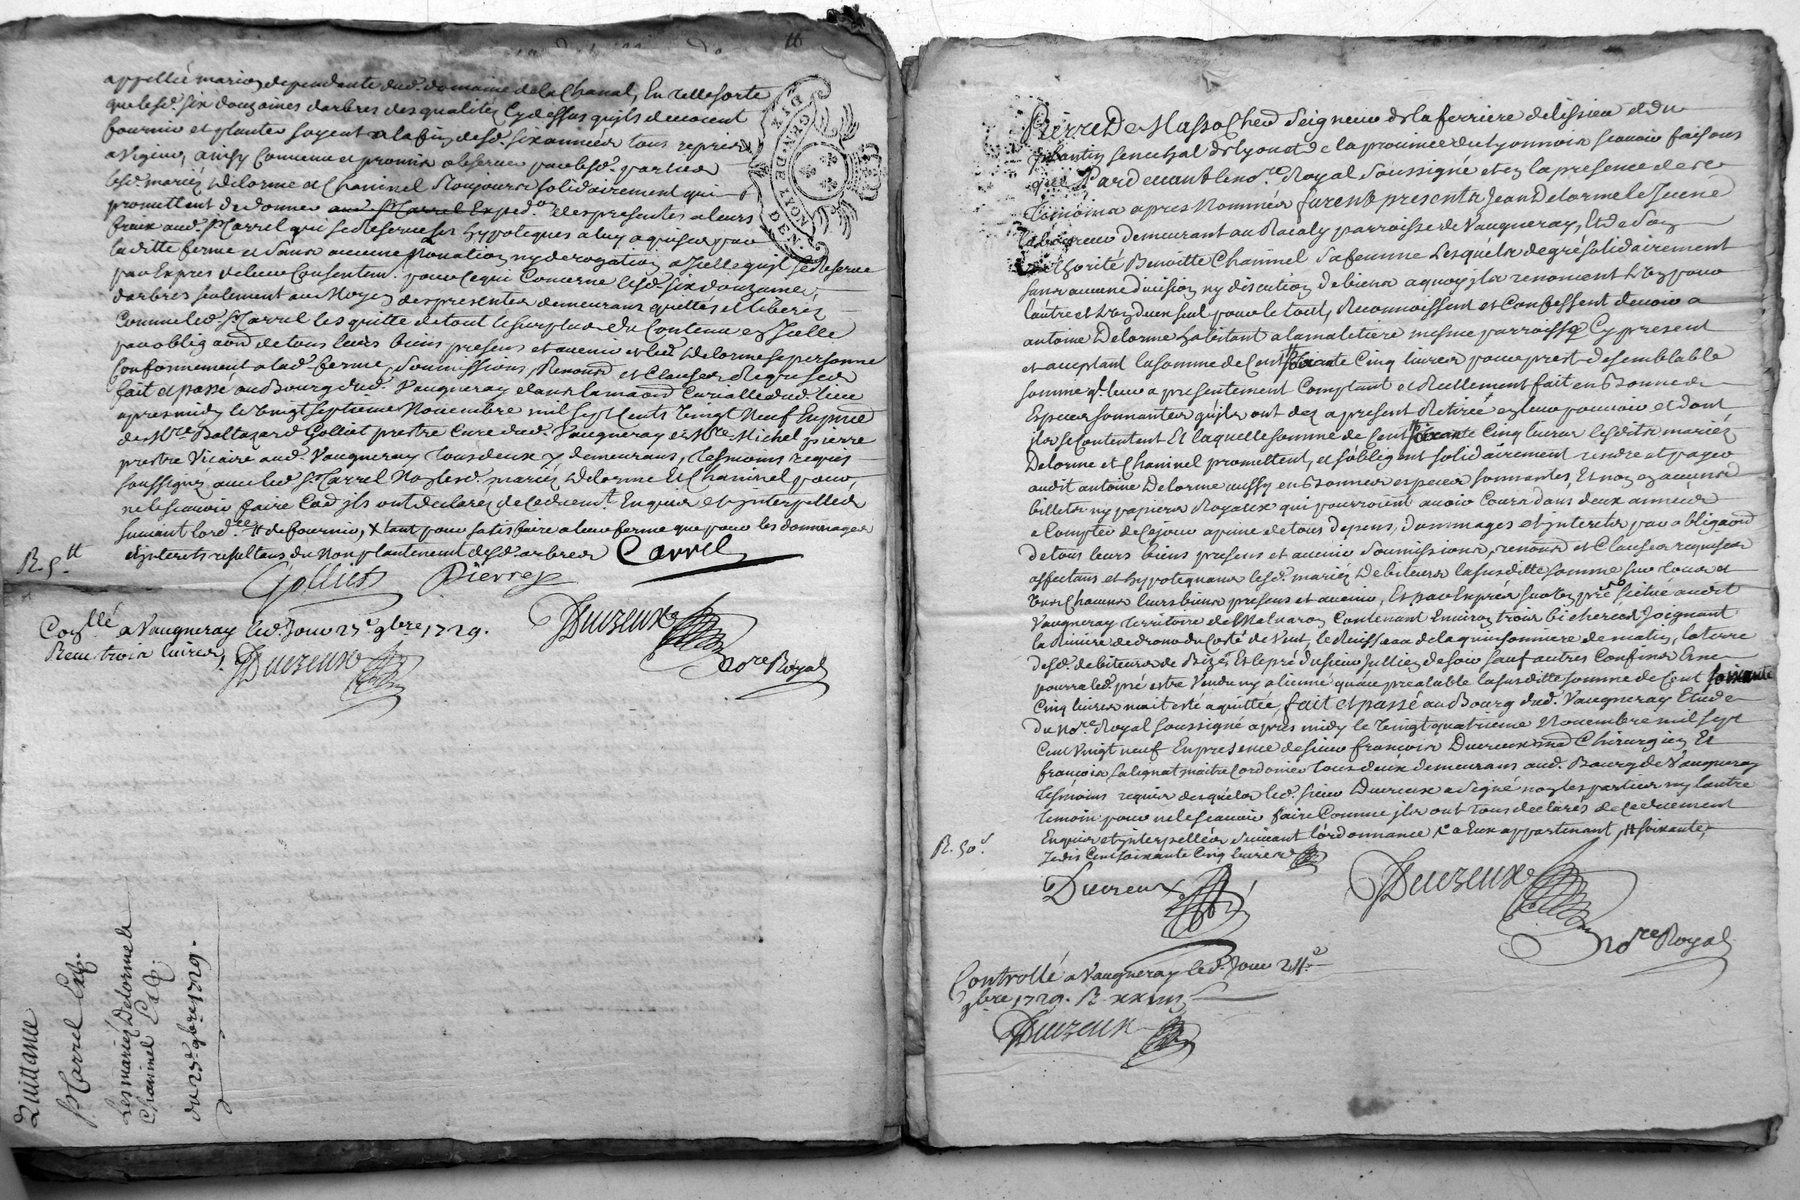 appellé marion dependante dud. domaine de la Chanal, En telle sorte
que lesd. six douzaines darbres des qualités Cy dessus quils devoient
fournir et planter soyent a la fin desd. six années tous repris
a Vigine, ainsy Convenu et promis observer par lesd. parties
lesd. mariez Delorme et Chaninel Toujours solidairement qui
promettent de donner aud. Sr Carrel Exped.on des presentes a leurs
fraix aud. Sr Carrel qui se Reserve ses hypoteques a luy aquises par
la ditte ferme et sans aucune Novation ny derogation a Icelle quil se Reserve
par Expres de leur Consentem. pour ce qui Concerne lesd. six douzaines
darbres seulement au Moyen des presentes demeurans quittes et liberés
Comme led. Sr Carrel les quitte de tout le surplus du Contenu en Icelle
par oblig.aond de tous leurs biens presens et avenir et led. Delorme sa personne
Conformement a lad. ferme, soumissions, Renond et Clauses Requises
fait et passé au Bourg dud. Vaugneray dans la maond Curialle dud. lieu
apres midy le Vingt septieme Novembre mil sept Cents Vingt Neuf En pnce
de Mre Baltazard Golliot prestre Cure dud. Vaugneray et Mre Michel pierre
prestre Vicaire aud. Vaugneray tous deux y demeurans, tesmoins requis
soussignez avec led. Sr Carrel Non lesd. mariez Delorme Et Chaninel pour
ne le scavoir faire Co.e ils ont declarez de ce deuemt. Enquis et Interpellés
suivant lord.ce # de fournir, X tant pour satisfaire a leur ferme que pour les dommages
et interets resultans du Non plantement desd. arbres Carrel
R. 5.tt
Golliot Pierre
Con.llé a Vaugneray led. Jour 27e 9bre 1729.
Receu trois livres
Ducreux
Ducreux
Nore Royal
Quittance
Sr Carrel
Les mariez Delorme et
Chaninel
du 27e 9bre 1729.
Pierre De Masso Cher Seigneur de la ferriere de lissieu et du
plantin senechal de lyon et de la province du lyonnois scavoir faisons
que Pardevant le nore. Royal Soussigné et en la presence des
Temoins apres Nommés furent presents Jean Delorme le Jeune
Laboureur demeurant au Recoly parroisse de Vaugneray, Et de Son
authorité Benoitte Chaninel sa femme Lesquels de gré solidairement
sans aucune division ny discution de biens a quoy ils renoncent L'un pour
l'autre et L'un d'eux seul pour le tout, Reconnoissent et Confessent devoir a
antoine Delorme habitant a la maletiere mesme parroisse Cy present
et acceptant la somme de Cent soixante Cinq livres pour prest de semblable
somme qu. leur a presentement Comptant et Reellement fait en bonnes
Especes sonnantes quils ont dez a present Retirée en leur pouvoir et dont
ils se Contentent Et laquelle somme de Cent soixante Cinq livres lesdits mariez
Delorme et Chaninel promettent, et s'obligent solidairement rendre et payer
audit antoine Delorme aussy en bonnes especes sonnantes, Et non en aucuns
billets ny papiers Royaux qui pourroient avoir Cours dans deux années
a Compter de Ce jour a peine de tous depens, dommages et interets par obligaond
de tous leurs biens presens et avenir soumissions, renond et Clauses requises
affectans et hypotequans lesd. mariez Debiteurs la susditte somme sur tous et
Uns Chacuns leurs biens presens et avenir, Et par Exprés sur un pré scitué audit
Vaugneray territoire de Malvaron Contenant Environ trois bicherées Joignant
la Riviere de drono du Costé de Vent, le Ruisseau de la quinsonniere de matin, la terre
desd. debiteurs de Bize Et le pré du sieur Jullien de soir sauf autres Confins Et ne
pourra led. pré estre Vendu ny aliené qu'au prealable la susditte somme de Cent soixante
Cinq livres n'ait esté aquittée, fait et passé au Bourg dud. Vaugneray Etude
du Nore. Royal soussigné après midy le Vingt quatrieme Novembre mil sept
Cent Vingt neuf En presence de sieur francois Ducreux md Chirurgien Et
francois Salignat maitre Cordonier tous deux demeurans aud. Bourg de Vaugneray
tesmoins requis desquels led. sieur Ducreux a signé non les parties ny l'autre
temoin pour ne le scavoir faire Comme ils ont tous declarés de ce deuement
Enquis et interpellés Suivant l'ordonnance, X a Eux appartenant, # soixante,
Je dis Cent soixante Cinq livres
R. 50.s
Ducreux
Ducreux
Nore Royal
Controllé a Vaugneray led. Jour 24.e
9bre 1729. R. xxiiii s
Ducreux